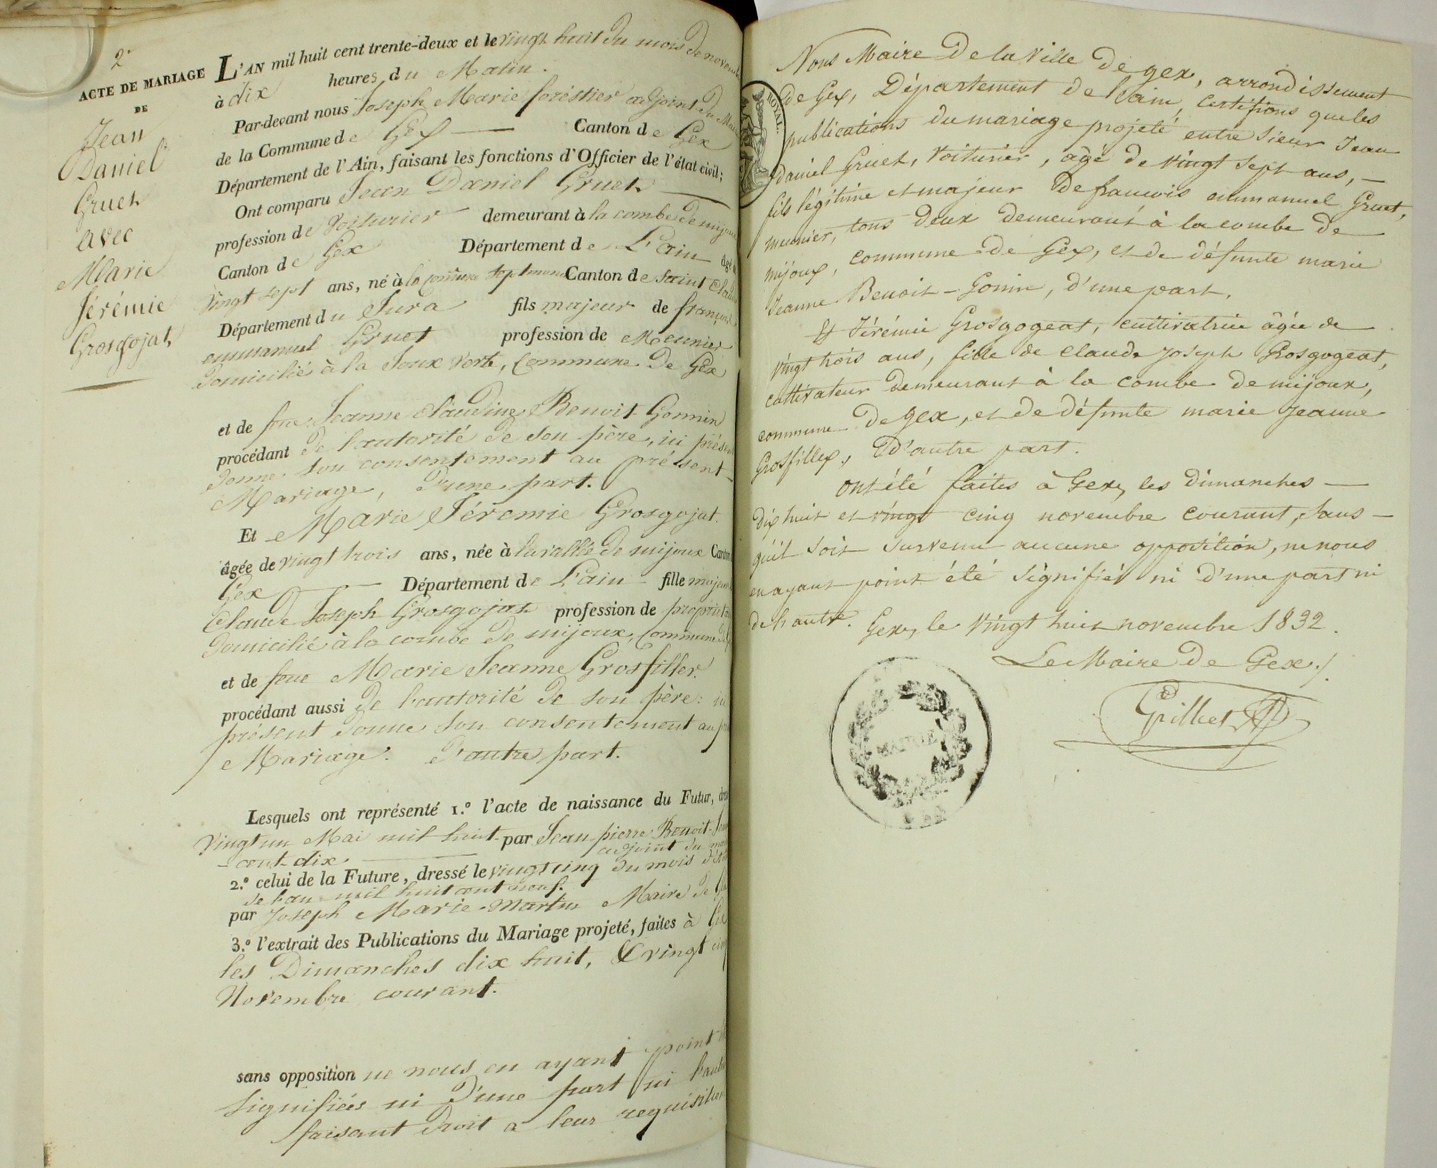 2e
ACTE DE MARIAGE
DE
Jean
Daniel
Gruet
avec
Marie
Jérémie
Grosgojat
L'AN mil huit cent trente-deux et le vingt huit du mois de novembre
à dix heures du Matin.
Par-devant nous Joseph Marie forestier adjoint du Maire
de la Commune de Gex Canton de Gex
Département de l'Ain, faisant les fonctions d'Officier de l'état civil;
Ont comparu Jean Daniel Gruet
profession de Voiturier demeurant à la combe de mijoux
Canton de Gex Département de L'ain âgé de
vingt sept ans, né à la commune Septmoncel Canton de Saint Claude
Département du Jura fils majeur de françois
emmanuel Gruet profession de Meunier
domicilié à la Joux verte, Commune de Gex
et de feue Jeanne Claudine Benoit Gonnin
procédant de l'autorité de son père, ici présent
donne son consentement au présent
Mariage, d'une part.
Et Marie Jéremie Grosgojat
âgée de vingt trois ans, née à la vallée de mijoux Canton
Gex Département de L'ain fille majeure
Claude Joseph Grosgojat profession de propriétaire
domicilié à la combe de mijoux, Commune de
et de feue Marie Jeanne Grosfiller
procédant aussi de l'autorité de son père: ici
présent donne son consentement au
Mariage. d'autre part.
Lesquels ont représenté 1.º l'acte de naissance du Futur,
vingt un Mai mil huit par Jean pierre Benoit
cent dix. adjoint du maire
2.º celui de la Future, dressé le vingt cinq du mois
de l'an mil huit cent neuf.
par Joseph Marie Martin Maire de
3.º l'extrait des Publications du Mariage projeté, faites à Gex
les Dimanches dix huit, & vingt cinq
Novembre courant.
sans opposition ne nous en ayant point été
signifiées ni d'une part ni l'autre
faisant droit a leur requisition
ROYAL.
Nous Maire De la Ville de gex, arrondissement
de Gex, Département de l'ain, certifions que les
publications du mariage projeté entre Sieur Jean
daniel Gruet, Voiturier, âgé de vingt sept ans,
fils légitime et majeur De francois emmanuel Gruet,
meunier, tous deux demeurant à la combe de
mijoux, commune de Gex, et de défunte marie
Jeanne Benoit-Gonin, d'une part.
Et Jérémie Grosgogeat, cultivatrice âgée de
vingt trois ans, fille de Claude Joseph Grosgogeat,
cultivateur demeurant à la combe de mijoux,
commune de gex, et de défunte marie jeanne
Grosfillex, D'autre part.
ont été faites à Gex, les dimanches
dix huit et vingt cinq novembre courant, sans
qu'il soit survenu aucune opposition, ne nous
en ayant point été signifié ni d'une part ni
de l'autre. Gex, le vingt huit novembre 1832.
Le Maire de Gex./
Grillet
MAIRIE